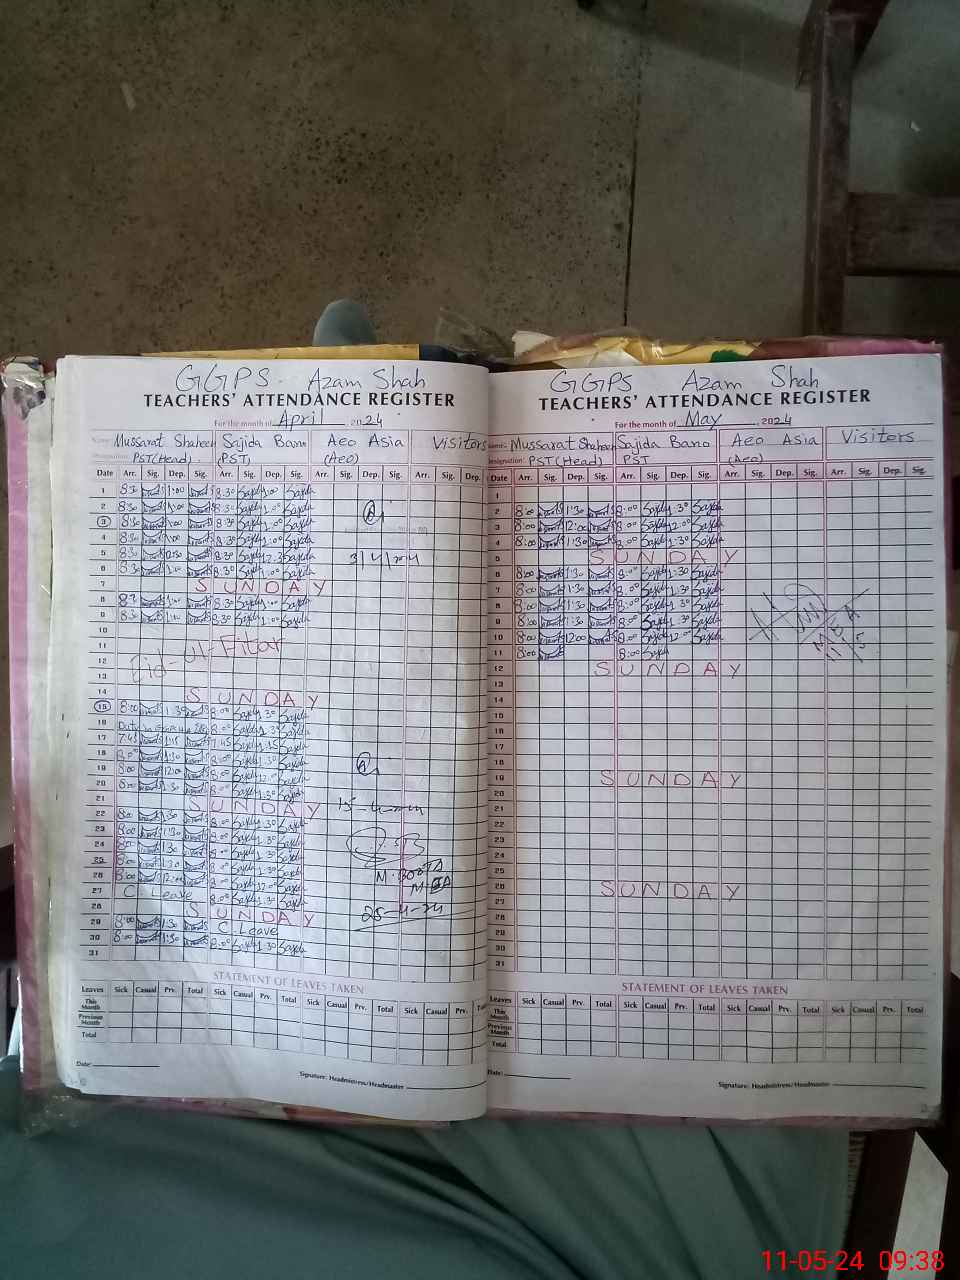 GGPS. Azam Shah
TEACHERS' ATTENDANCE REGISTER
For the month of April, 2024
Name: Mussarat Shaheen Sajida Bano Aeo Asia Visitors
Designation: PST(Head). (PST) (Aeo)
Date Arr. Sig. Dep. Sig. Arr. Sig. Dep. Sig. Arr. Sig. Dep. Sig. Arr. Sig. Dep.
1 8:30 1:00 8:30 Sajida 1:00 Sajida
2 8:30 1:00 8:30 Sajida 1:00 Sajida
3 8:30 1:00 8:30 Sajida 1:00 Sajida
4 8:30 1:00 8:30 Sajida 1:00 Sajida
5 8:30 12:30 8:30 Sajida 12:30 Sajida 3/4/24
6 8:30 1:00 8:30 Sajida 1:00 Sajida
7 SUNDAY
8 8:30 1:00 8:30 Sajida 1:00 Sajida
9 8:30 1:00 8:30 Sajida 1:00 Sajida
10
11 Eid-ul-Fitar
12
13
14 SUNDAY
15 8:00 1:30 8:00 Sajida 1:30 Sajida
16 8:00 Sajida 1:30 Sajida
17 7:45 1:15 7:45 Sajida 1:15 Sajida
18 8:00 1:30 8:00 Sajida 1:30 Sajida
19 8:00 12:00 8:00 Sajida 12:00 Sajida
20 8:00 1:30 8:00 Sajida 1:30 Sajida
21 SUNDAY 15-4-24
22 8:00 1:30 8:00 Sajida 1:30 Sajida
23 8:00 1:30 8:00 Sajida 1:30 Sajida
24 8:00 1:30 8:00 Sajida 1:30 Sajida
25 8:00 1:30 8:00 Sajida 1:30 Sajida M. BOOTA
26 8:00 12:00 8:00 Sajida 12:00 Sajida MEA
27 C. Leave 8:00 Sajida 1:30 Sajida
28 SUNDAY 25-4-24
29 8:00 1:30 C Leave
30 8:00 1:30 8:00 Sajida 1:30 Sajida
31
STATEMENT OF LEAVES TAKEN
Leaves Sick Casual Prv. Total Sick Casual Prv. Total Sick Casual Prv. Total Sick Casual Prv.
This Month
Previous Month
Total
Date:
Signature: Headmistress/Headmaster
GGPS Azam Shah
TEACHERS' ATTENDANCE REGISTER
For the month of May, 2024
Name: Mussarat Shaheen Sajida Bano Aeo Asia Visitors
Designation: PST(Head) PST (Aeo)
Date Arr. Sig. Dep. Sig. Arr. Sig. Dep. Sig. Arr. Sig. Dep. Sig. Arr. Sig. Dep. Sig.
1
2 8:00 1:30 8:00 Sajida 1:30 Sajida
3 8:00 12:00 8:00 Sajida 12:00 Sajida
4 8:00 1:30 8:00 Sajida 1:30 Sajida
5 SUNDAY
6 8:00 1:30 8:00 Sajida 1:30 Sajida
7 8:00 1:30 8:00 Sajida 1:30 Sajida
8 8:00 1:30 8:00 Sajida 1:30 Sajida
9 8:00 1:30 8:00 Sajida 1:30 Sajida
10 8:00 12:00 8:00 Sajida 12:00 Sajida
11 8:00 8:00 Sajida
12 SUNDAY
13
14
15
16
17
18
19 SUNDAY
20
21
22
23
24
25
26 SUNDAY
27
28
29
30
31
STATEMENT OF LEAVES TAKEN
Leaves Sick Casual Prv. Total Sick Casual Prv. Total Sick Casual Prv. Total Sick Casual Prv. Total
This Month
Previous Month
Total
Date:
Signature: Headmistress/Headmaster
11-05-24 09:38